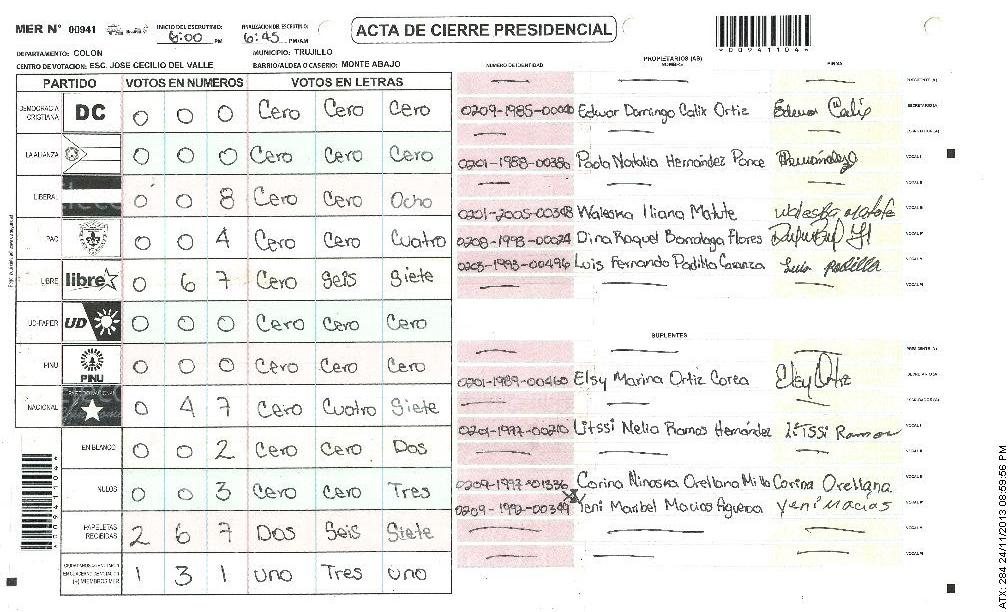 MER N° 00941 INICIO DEL ESCRUTINIO: 6:00 PM FINALIZACION DEL ESCRUTINIO: 6:45 PM/AM ACTA DE CIERRE PRESIDENCIAL
DEPARTAMENTO: COLON MUNICIPIO: TRUJILLO
CENTRO DE VOTACION: ESC. JOSE CECILIO DEL VALLE BARRIO/ALDEA O CASERIO: MONTE ABAJO
PARTIDO VOTOS EN NUMEROS VOTOS EN LETRAS
DEMOCRACIA CRISTIANA DC 0 0 0 Cero Cero Cero
LA ALIANZA 0 0 0 Cero Cero Cero
LIBERAL 0 0 8 Cero Cero Ocho
PAC 0 0 4 Cero Cero Cuatro
LIBRE libre 0 6 7 Cero Seis Siete
UD-FAPER UD 0 0 0 Cero Cero Cero
PINU PINU 0 0 0 Cero Cero Cero
NACIONAL 0 4 7 Cero Cuatro Siete
EN BLANCO 0 0 2 Cero Cero Dos
NULOS 0 0 3 Cero Cero Tres
PAPELETAS RECIBIDAS 2 6 7 Dos Seis Siete
1 3 1 uno Tres uno
NUMERO DE IDENTIDAD PROPIETARIOS (AS) NOMBRE FIRMA
Edwar Domingo Calix Ortiz
0201-1988-00386 Paola Natalia Hernández Ponce Hernández
0201-2005-00348 Waleska Iliana Matute
0208-1993-00024 Dina Raquel Barralaga Flores
0203-1993-00496 Luis Fernando Padilla Luis Padilla
SUPLENTES
0201-1989-00460 Elsy Marina Ortiz Corea Elsy Ortiz
0201-1997-00210 Litssi Melia Ramos Hernández Litssi Ramos
0209-1997-01336 Corina Ninoska Orellana Corina Orellana
0209-1992-00349 Yeni Maribel Macias Figueroa Yeni Macias
ATX: 284 24/11/2013 08:59:56 PM